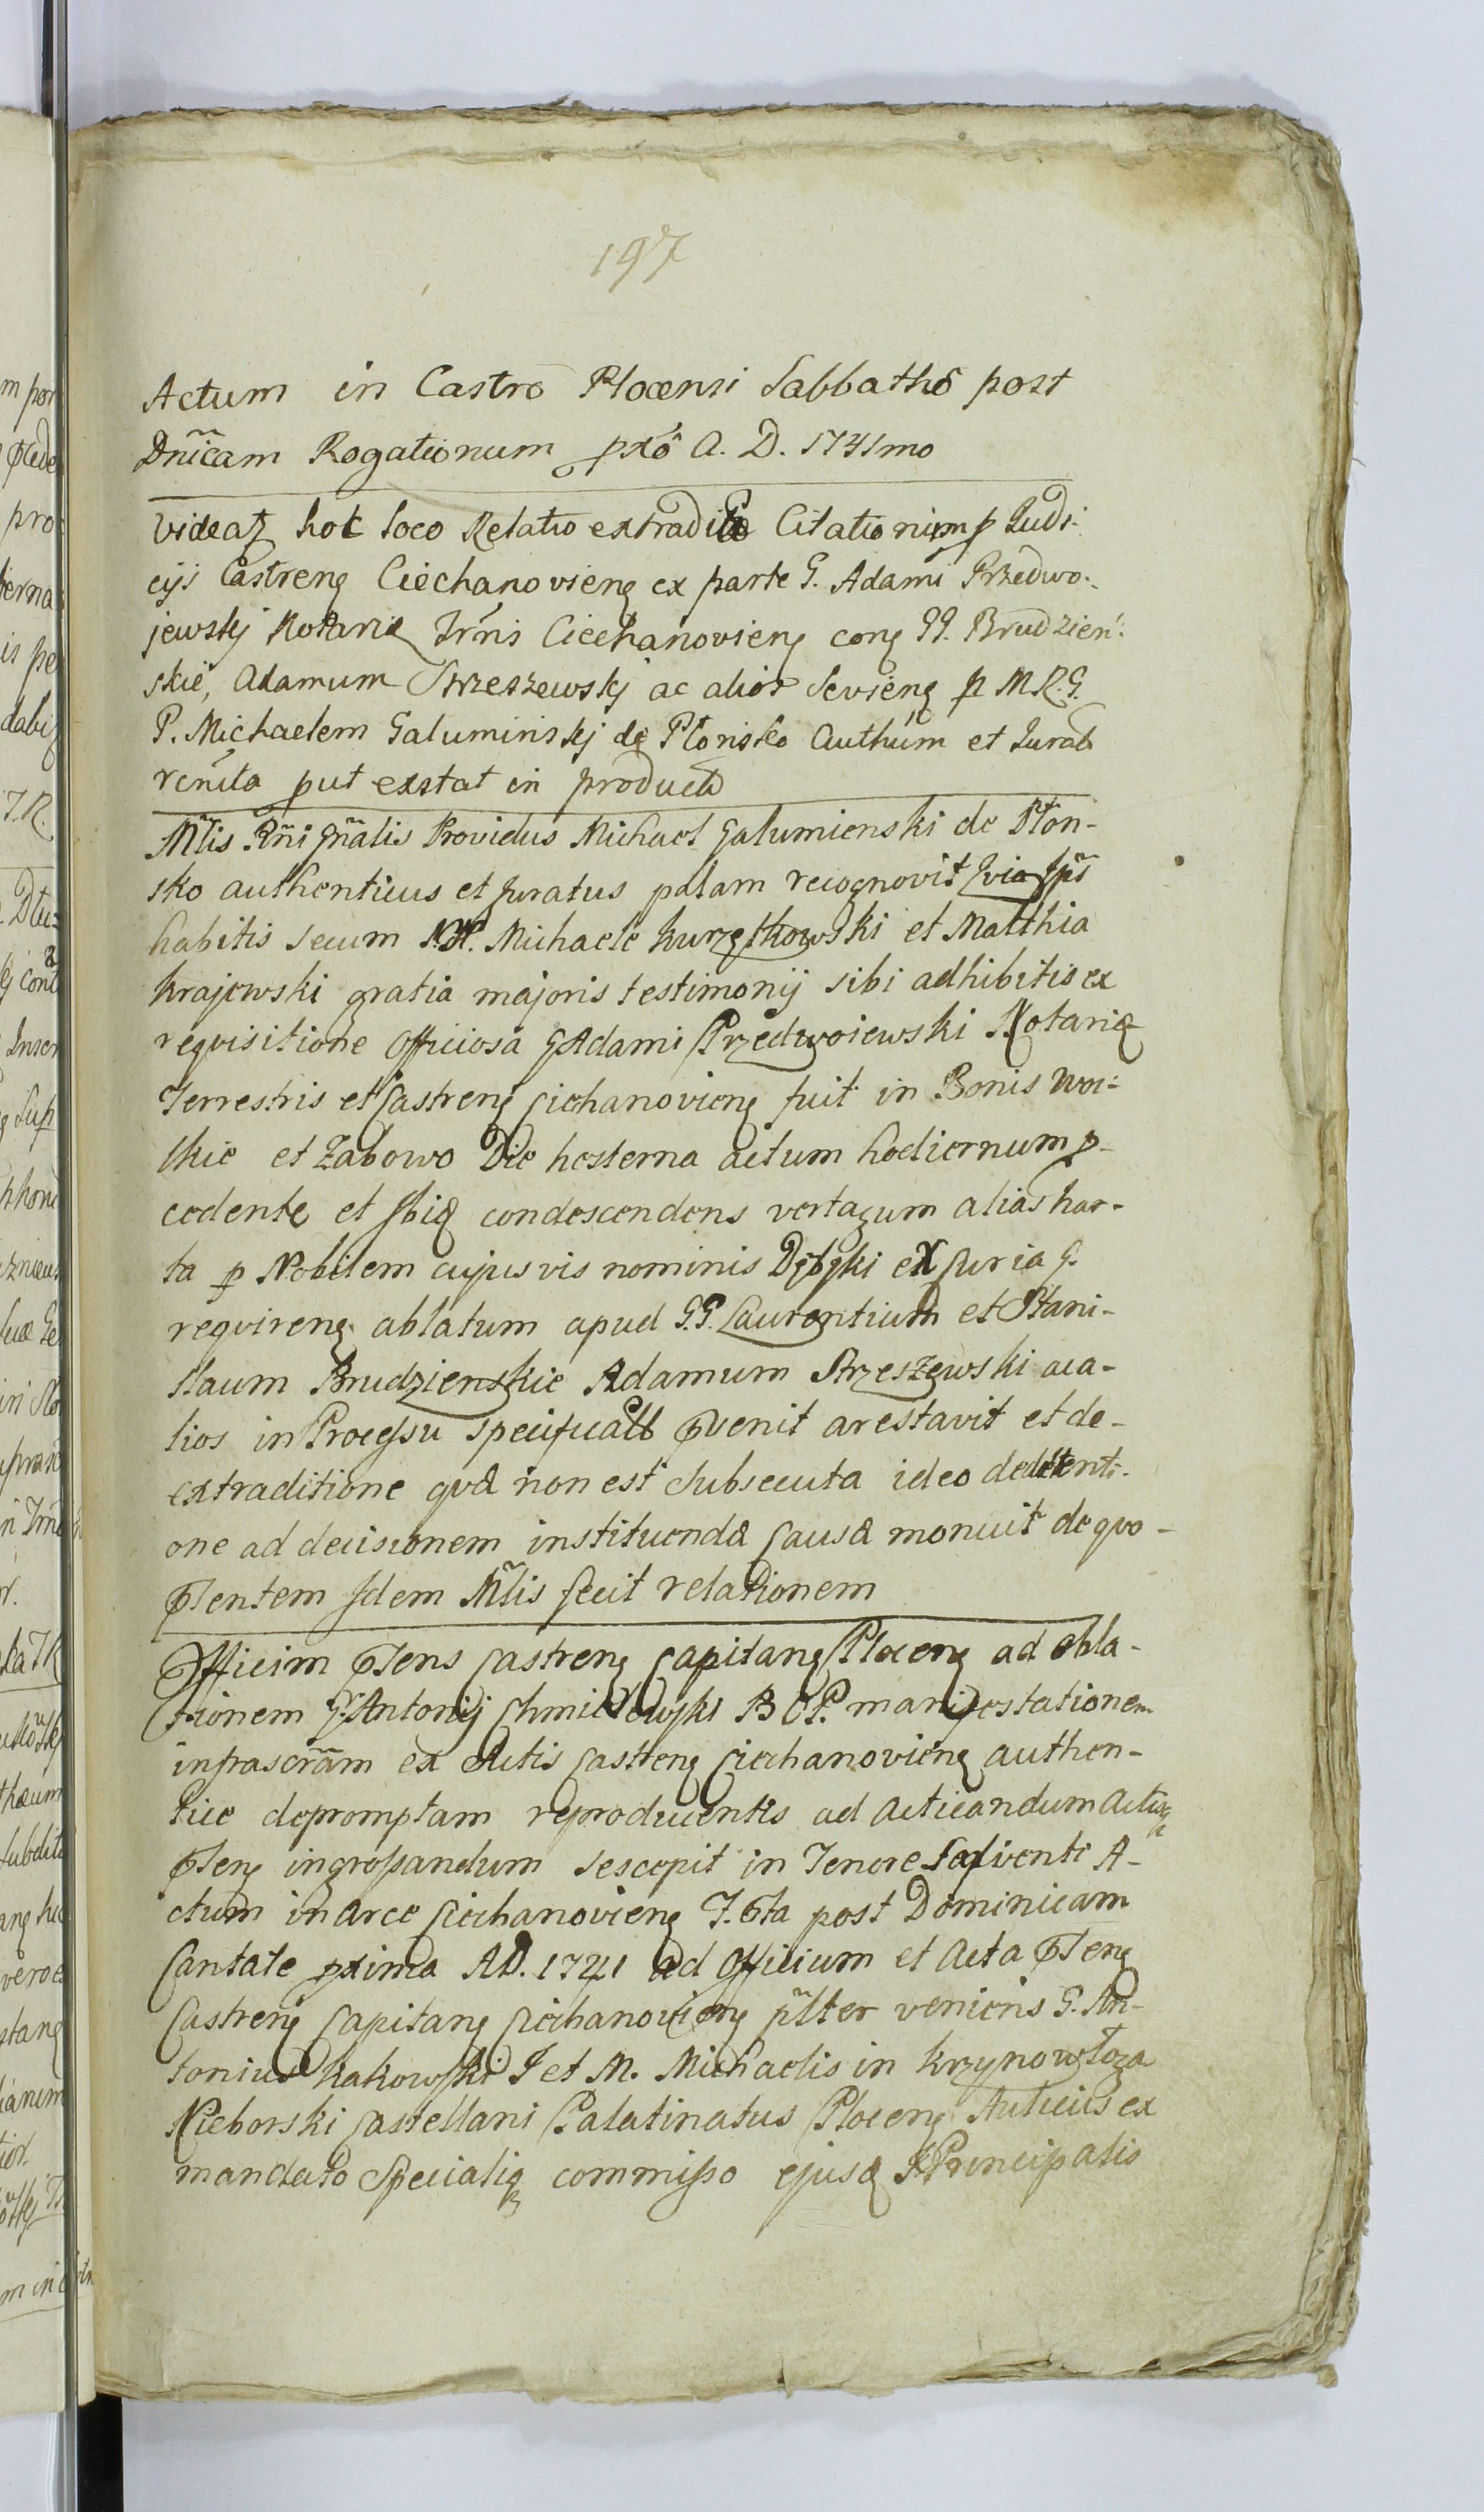 197
Actum in Castro Plocensi Sabbatho post
Dnicam Rogationum pxo A. D. 1741mo
Videatz hoc loco Relatio extradite Citationum p Judi-
cijs Castreng Ciechanovieng ex parte G. Adami Przedwo-
jewskj Notarie Trris Ciechanovieng cong GG. Brudzien-
skie, Adamum Strzeszewskj ac alios Sevieng p M.R.G.
P. Michaelem Galuminskj de Płonsko Authum et Jurat
renita put exstat in producto
Mlis Rni Gnalis Providus Michael Galumienski de Płon-
sko authenticus et Juratus palam recognovit Quia Ips
habitis secum NN. Michaele Kurzętkowski et Matthia
Krajewski gratia majoris testimonij sibi adhibitis ex
requisitione officiosa G Adami Przedwoiewski Notarie
Terrestris et Castreng Ciechanovieng fuit in Bonis Woi-
tkie et Zabowo Die hesterna actum hodiernum p-
cedente et Ibiq condescendens vertagum alias har-
ta p Nobilem cujusvis nominis Dębski ex Curia G.
requireng ablatum apud G.G. Laurentium et Stani-
slaum Brudzienskie Adamum Strzeszewski ac a-
lios in Processu specificatt invenit arestavit et de-
extraditione qva non est Subsecuta ideo de detenti-
one ad decisionem instituenda Causa monuit de quo-
Ptentem Idem Mlis fecit relationem
Officim Ptens Castreng Capitang Ploceng ad obla-
tionem G. Antonij Chmielewski B C P. manifestationem
infrascram ex Actis Castreng Ciechanovieng authen-
tice depromptam reproducentis ad acticandum Actisq
Pteng ingrossandum sescepit in Tenore Seqventi A-
ctum in Arce Ciechanovieng F. 6ta post Dominicam
Cantate pxima AD. 1741 ad Officium et Acta Pteng
Castreng Capitang Ciechanovieng plter veniens G. An-
tonius Kakowski I et M. Michaelis in Krzynowłoga
Nieborski Castellani Palatinatus Ploceng Aulicus ex
mandato Specialiq commisso ejusd I Principalis